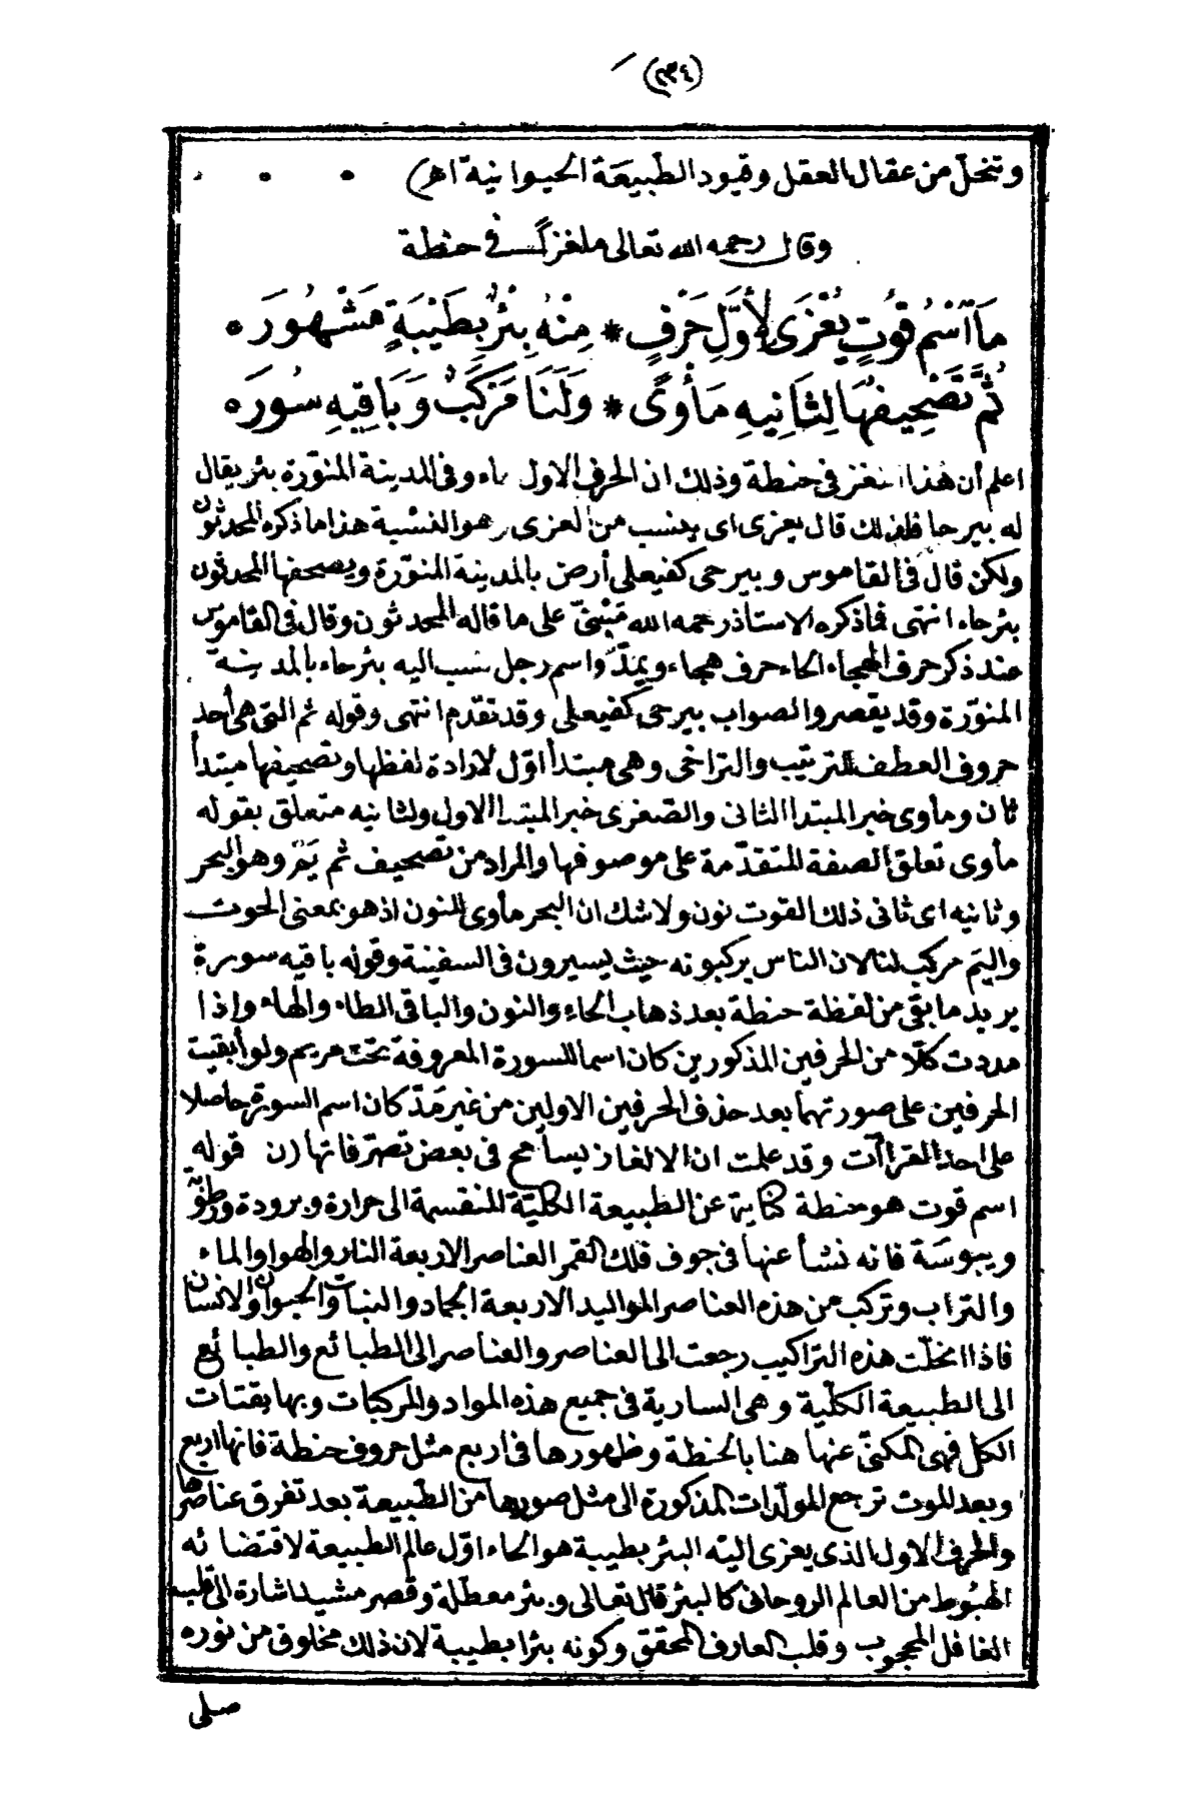 (٣٣٤)
وتنحلّ من عقال العقل وقيود الطّبيعَة الحيوانية اهـ)
وقال رحمه الله تعالى ملغزا في حنطة
مَا ٱسْمُ قُوتٍ يُعْزَى لِأَوَّلِ حَرْفٍ * مِنْهُ بِئْرٌ بِطَيْبَةٍ مَشْهُورَه
ثُمَّ تَصْحِيفُهَا لِثَانِيهِ مَأْوًى * وَلَنَا مَرْكَبٌ وَبَاقِيهِ سُورَه
اعلم أن هذا اللغز في حنطة وذلك ان الحرف الاول حاء وفى المدينة المنوّرة بئر يقال
له بير حا فلذلك قال يعزى اى ينسب من العزى وهو النسبة هذا ما ذكره المحدثون
ولكن قال فى القاموس وبيرحى كفيعلى أرض بالمدينة المنوّرة ويصحفها المحدثون
بئرحاء انتهى فما ذكره الاستاذ رحمه الله مَبْنىّ على ما قاله المحدثون وقال فى القاموس
عند ذكر حرف الهجاء الحاء حرف هجاء ويمدّ واسم رجل نسب اليه بئرحاء بالمدينة
المنوّرة وقد يقصر والصواب بيرحى كفيعلى وقد تقدّم انتهى وقوله ثم التى هى أحد
حروف العطف للترتيب والتراخى وهى مبتدأ اوّل لارادة لفظها وتصحيفها مبتدأ
ثان ومأوى خبر المبتدا الثانى والصّغرى خبر المبتدا الاول ولثانيه متعلق بقوله
مأوى تعلق الصفة المتقدّمة على موصوفها والمراد من تصحيف ثم يَمّ وهو البحر
وثانيه اى ثانى ذلك القوت نون ولا شك ان البحر مأوى للنون اذ هو بمعنى الحوت
واليَم مركب لنا لان الناس يركبونه حيث يسيرون فى السفينة وقوله باقيه سورة
يريد ما بقى من لفظة حنطة بعد ذهاب الحاء والنون والباقى الطاء والهاء واذا
مددت كلّا من الحرفين المذكورين كان اسما للسورة المعروفة تحت مريم ولو أبقيت
الحرفين على صورتهما بعد حذف الحرفين الاولين من غير مَدّ كان اسم السورة حاصلا
على احد القراآت وقد علمت ان الالغاز يسامح فى بعض تصرّفاتها (ن قوله
اسم قوت هو حنطة كناية عن الطبيعة الكليّة المنقسمة الى حرارة وبرودة ورطوبة
ويبوسَة فانه نشأ عنها فى جوف فلك القمر العناصر الاربعة النار والهوا والماء
والتراب وتركب من هذه العناصر المواليد الاربعة الجماد والنبات والحيوان والانسان
فاذا انحلّت هذه التراكيب رجعت الى العناصر والعناصر الى الطبائع والطبائع
الى الطبيعة الكلّية وهى السارية فى جميع هذه المواد والمركبات وبها يقتات
الكل فهى المكنىّ عنها هنا بالحنطة وظهورها فى اربع مثل حروف حنطة فانها اربع
وبعد الموت ترجع المولّدات المذكورة الى مثل صورها من الطّبيعة بعد تفرق عناصرها
والحرف الاول الذى يعزى اليّه البئر بطيبة هو الحاء اوّل عالم الطبيعة لاقتضائه
الهبُوط من العالم الروحانى كالبئر قال تعالى وبئر معطّلة وقصر مشيد اشارة الى قلب
الغافل المحجوب وقلب العارف المحقق وكونه بئرا بطيبة لان ذلك مخلوق من نوره
صلى